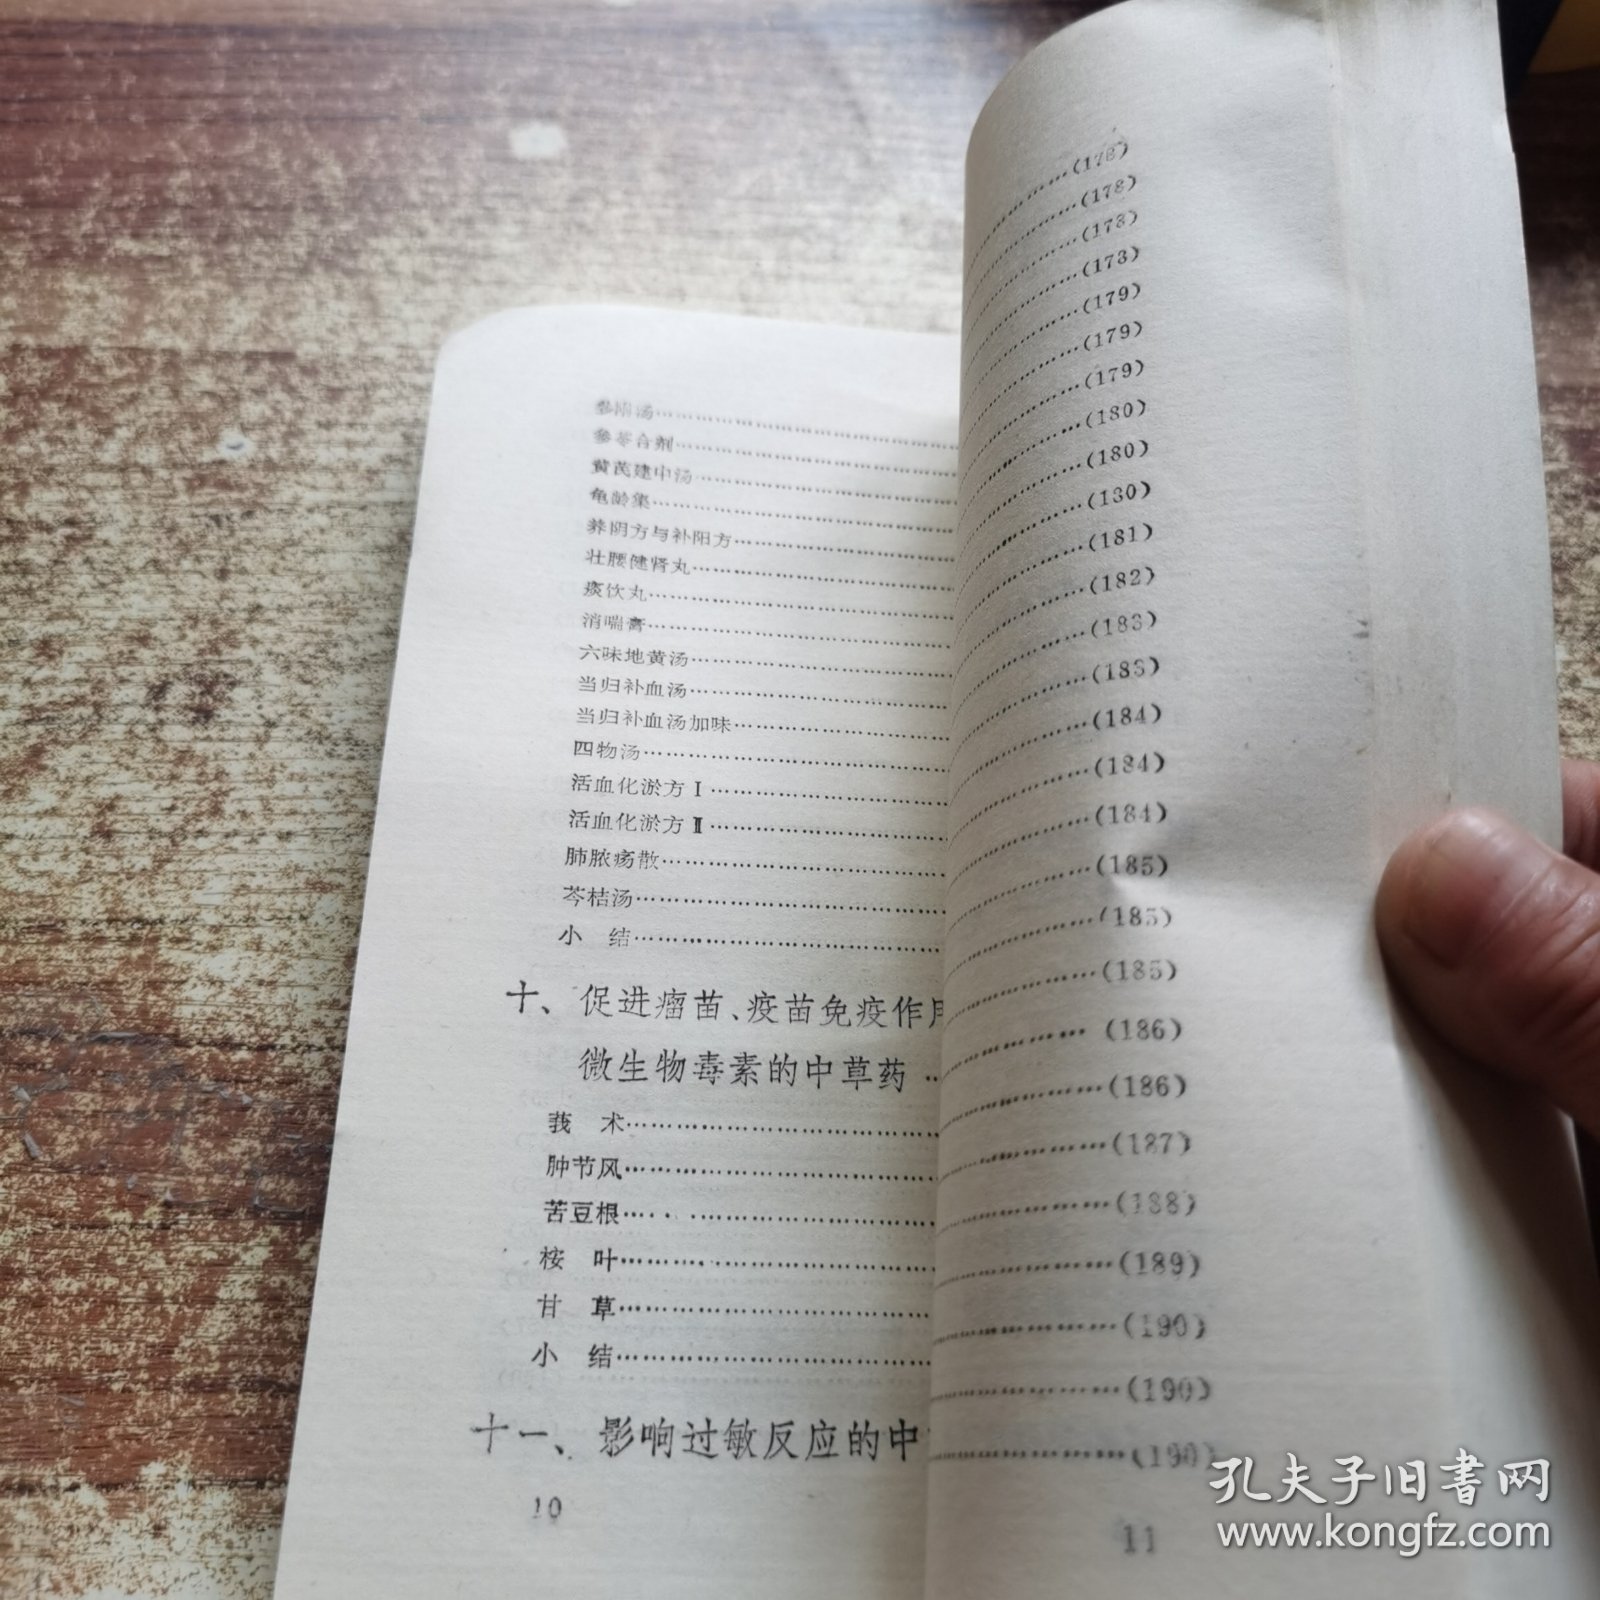 参附汤……………………
参苓合剂……………………
黄芪建中汤……………………
龟龄集……………………
养阴方与补阳方……………………
壮腰健肾丸……………………
痰饮丸……………………
消喘膏……………………
六味地黄汤……………………
当归补血汤……………………
当归补血汤加味……………………
四物汤……………………
活血化淤方Ⅰ……………………
活血化淤方Ⅱ……………………
肺脓疡散……………………
芩桔汤……………………
小　结……………………
十、促进瘤苗、疫苗免疫作用
微生物毒素的中草药 …
莪　术……………………
肿节风……………………
苦豆根……………………
桉　叶……………………
甘　草……………………
小　结……………………
十一、影响过敏反应的中
10
……………(178)
……………(178)
……………(178)
……………(178)
……………(179)
……………(179)
……………(179)
……………(180)
……………(180)
……………(180)
……………(181)
……………(182)
……………(183)
……………(183)
……………(184)
……………(184)
……………(184)
……………(185)
……………(185)
……………(185)
…………… (186)
……………(186)
……………(187)
……………(188)
……………(189)
……………(190)
……………(190)
……………(190)
11
孔夫子旧书网
www.kongfz.com